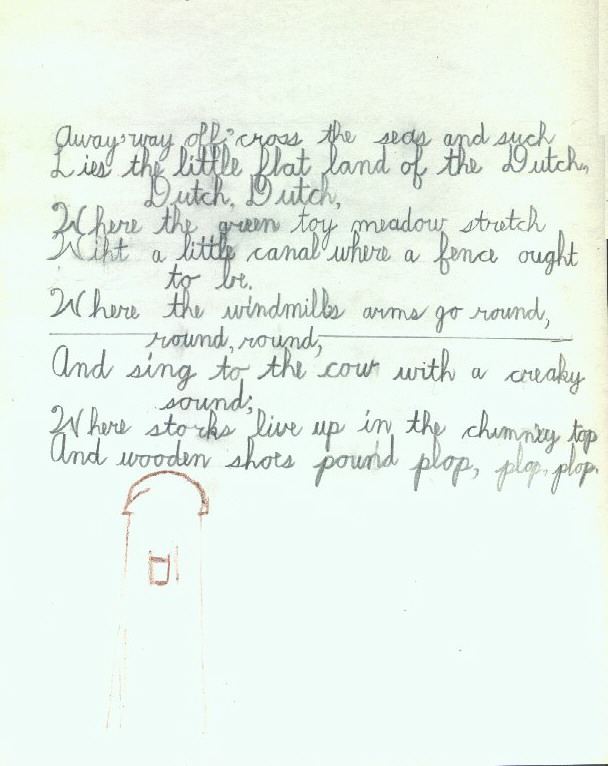 Away, 'way off 'cross the seas and such
Lies the little flat land of the Dutch,
Dutch, Dutch,
Where the green toy meadow stretch
Wiht a little canal where a fence ought
to be.
Where the windmills arms go round,
round, round,
And sing to the cow with a creaky
sound;
Where storks live up in the chimney top
And wooden shoes pound plop, plop, plop.